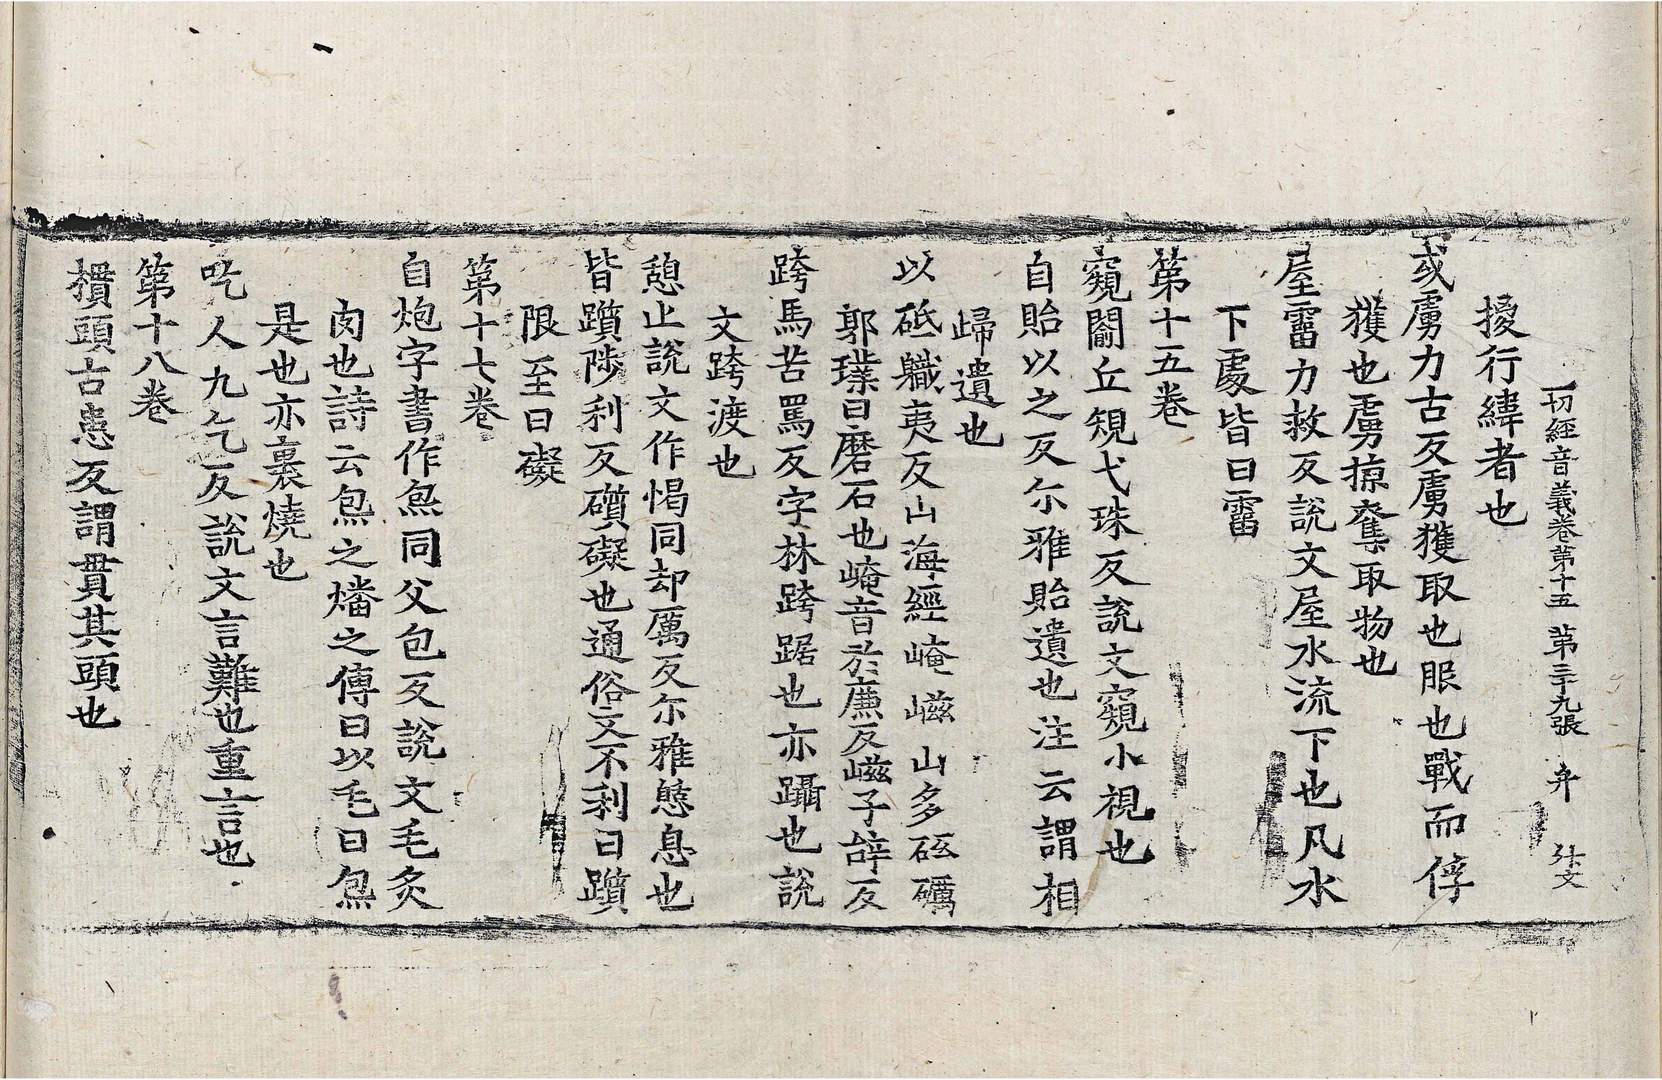 一切經音義卷第十五 第三十九張 弁
擾行緯者也
或虜力古反虜獲取也服也戰而俘
獲也虜掠奪取物也
屋霤力救反說文屋水流下也凡水
下處皆曰霤
第十五卷
窺闚丘規弋珠反說文窺小視也
自貽以之反尔雅貽遺也注云謂相
歸遺也
以砥軄夷反山海經崦嵫山多砥礪
郭璞曰磨石也崦音於廉反嵫子辝反
跨馬苦罵反字林跨踞也亦躡也說
文跨渡也
憩止說文作愒同却厲反尔雅憩息也
皆躓陟利反礩礙也通俗文不利曰躓
限至曰礙
第十七卷
自炮字書作炰同父包反說文毛炙
肉也詩云炰之燔之傳曰以毛曰炰
是也亦裹燒也
吃人九乞反說文言難也重言也
第十八卷
摜頭古患反謂貫其頭也